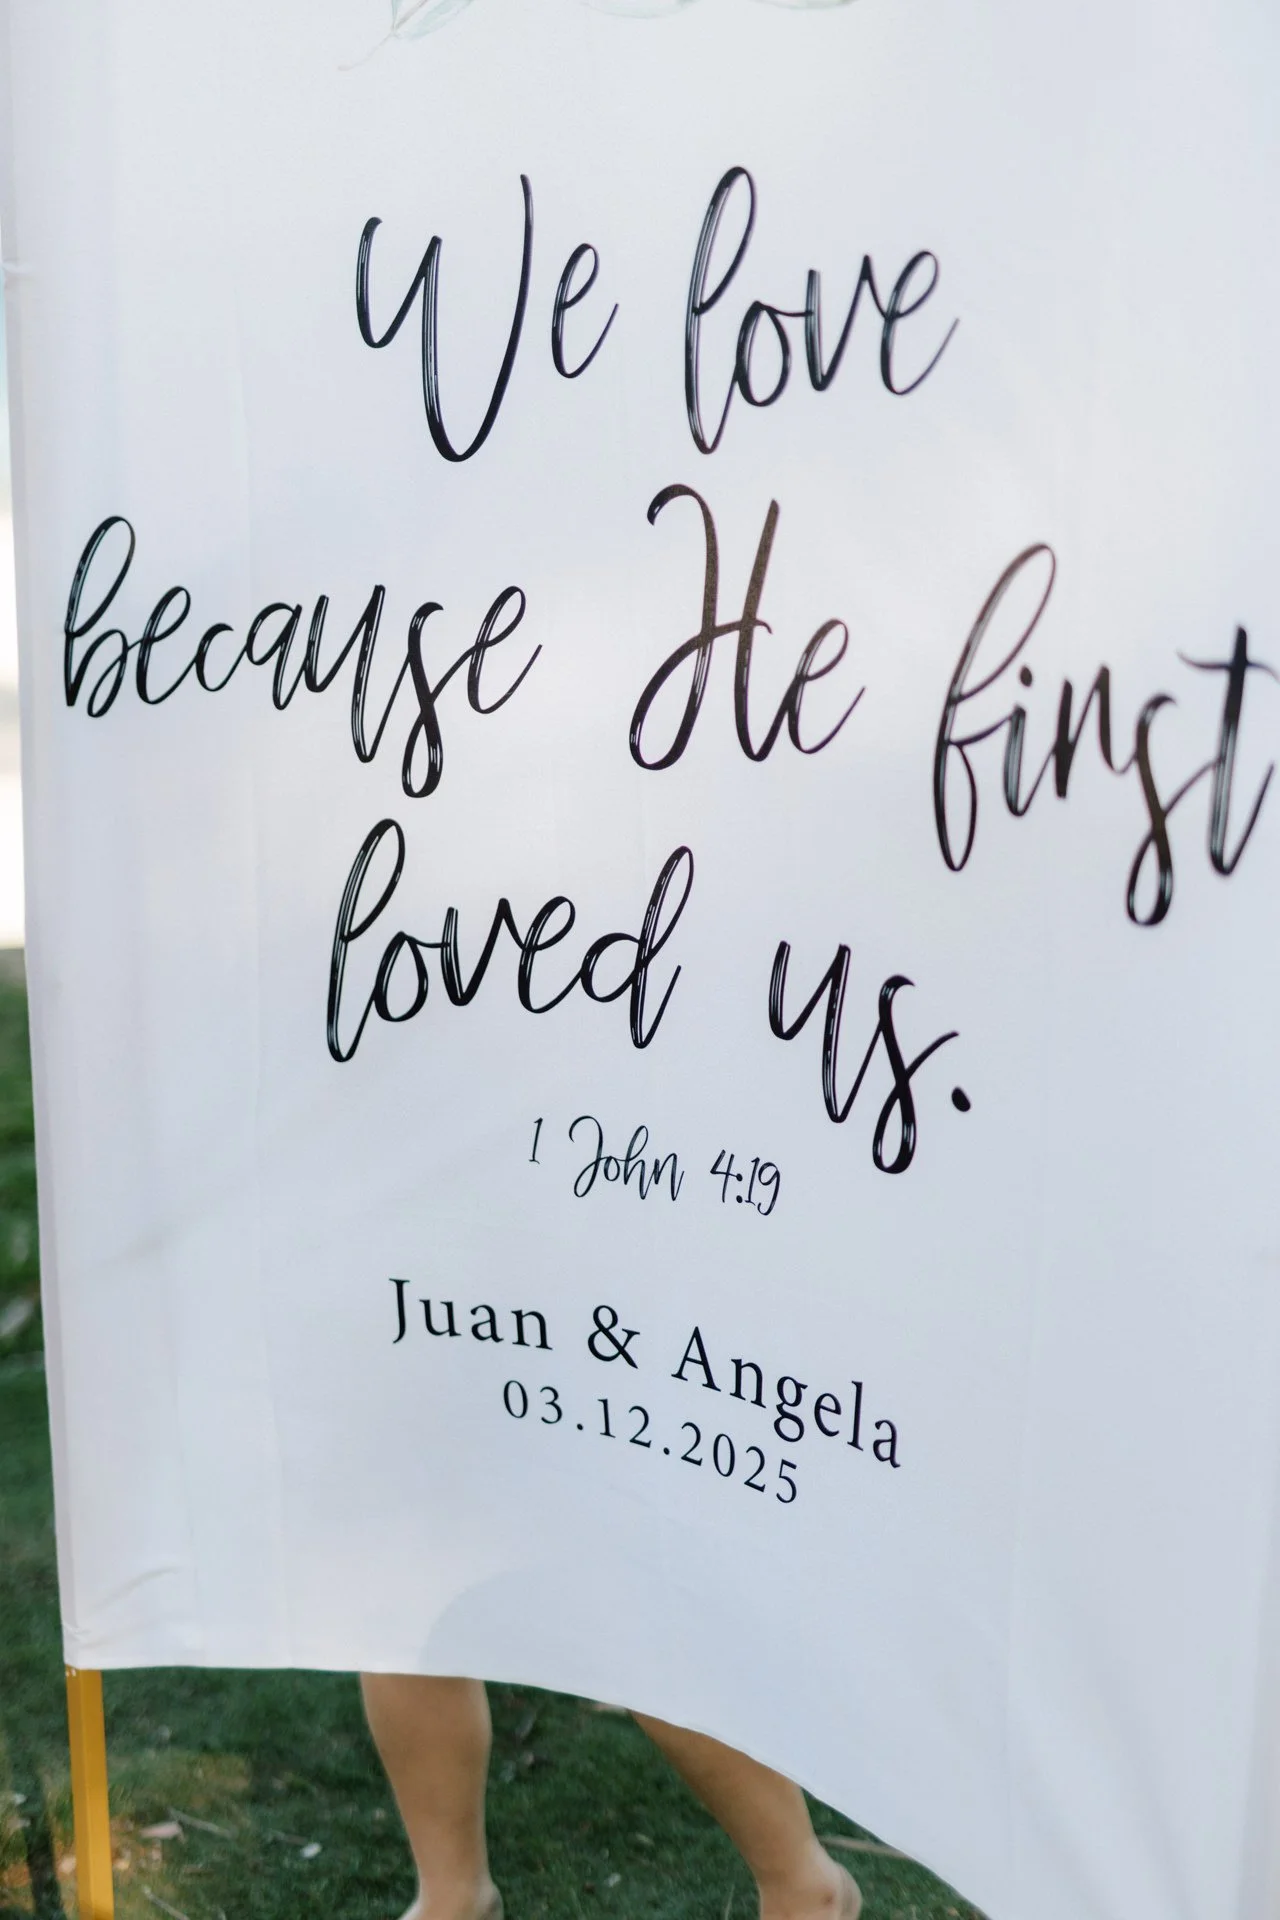 We love
because He first
loved us.
1 John 4:19
Juan & Angela
03.12.2025